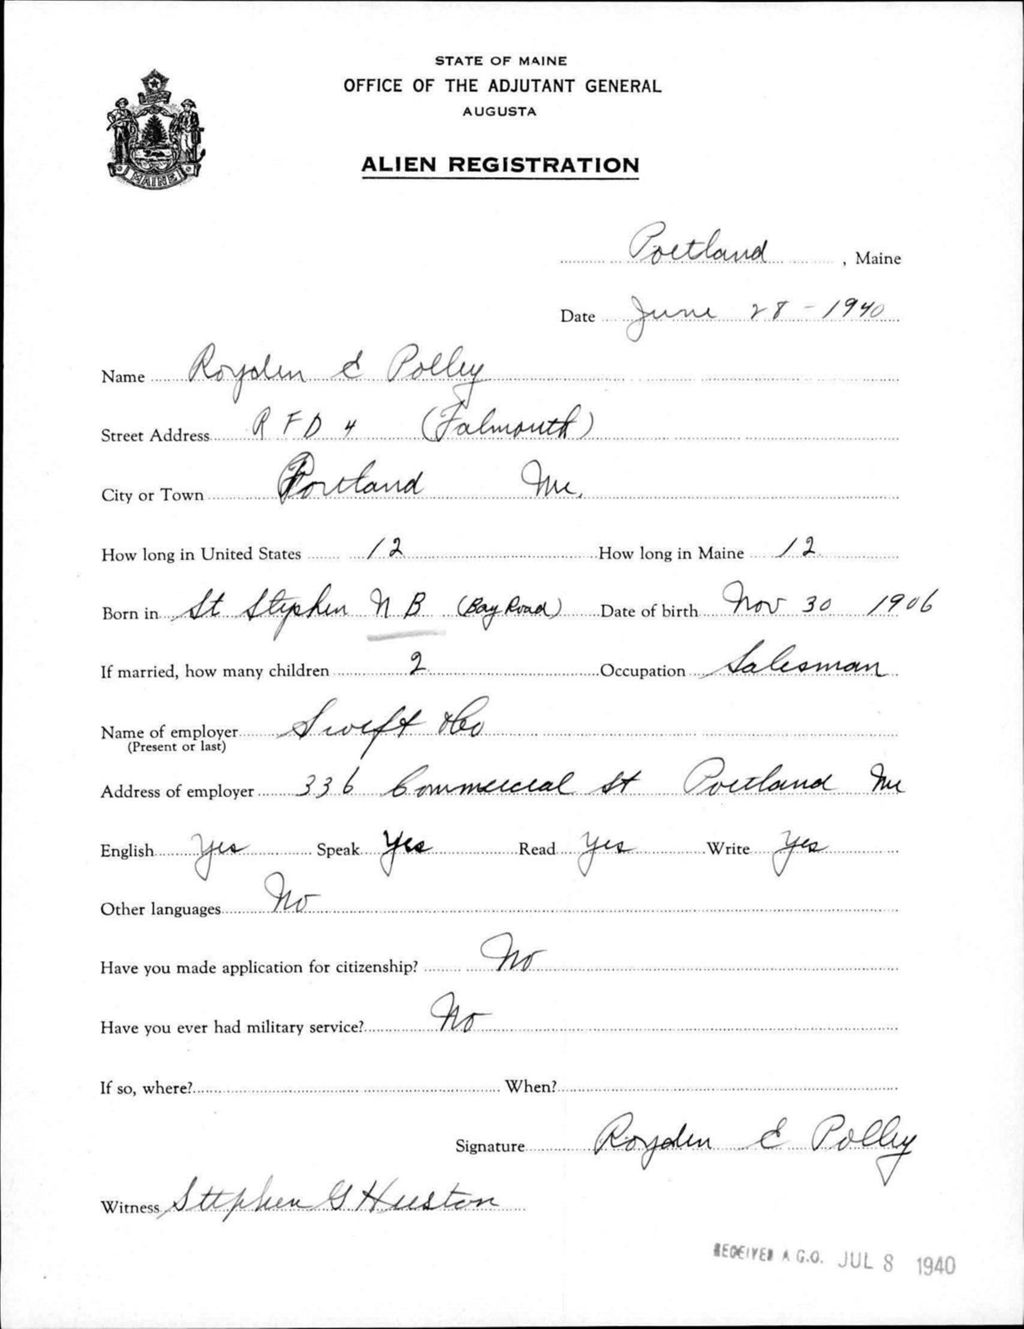 STATE OF MAINE
OFFICE OF THE ADJUTANT GENERAL
AUGUSTA
MAINE
ALIEN REGISTRATION
Portland, Maine
Date June 28 - 1940
Name Royden E Polley
Street Address R F D 4 (Falmouth)
City or Town Portland Me.
How long in United States 12 How long in Maine 12
Born in St Stephen N B (Bay Road) Date of birth Nov 30 1906
If married, how many children 2 Occupation Salesman
Name of employer Swift & Co
(Present or last)
Address of employer 336 Commercial St Portland Me
English Yes Speak Yes Read Yes Write Yes
Other languages No
Have you made application for citizenship? No
Have you ever had military service? No
If so, where? When?
Signature Royden E Polley
Witness Stephen G Huston
RECEIVED A.G.O. JUL 8 1940